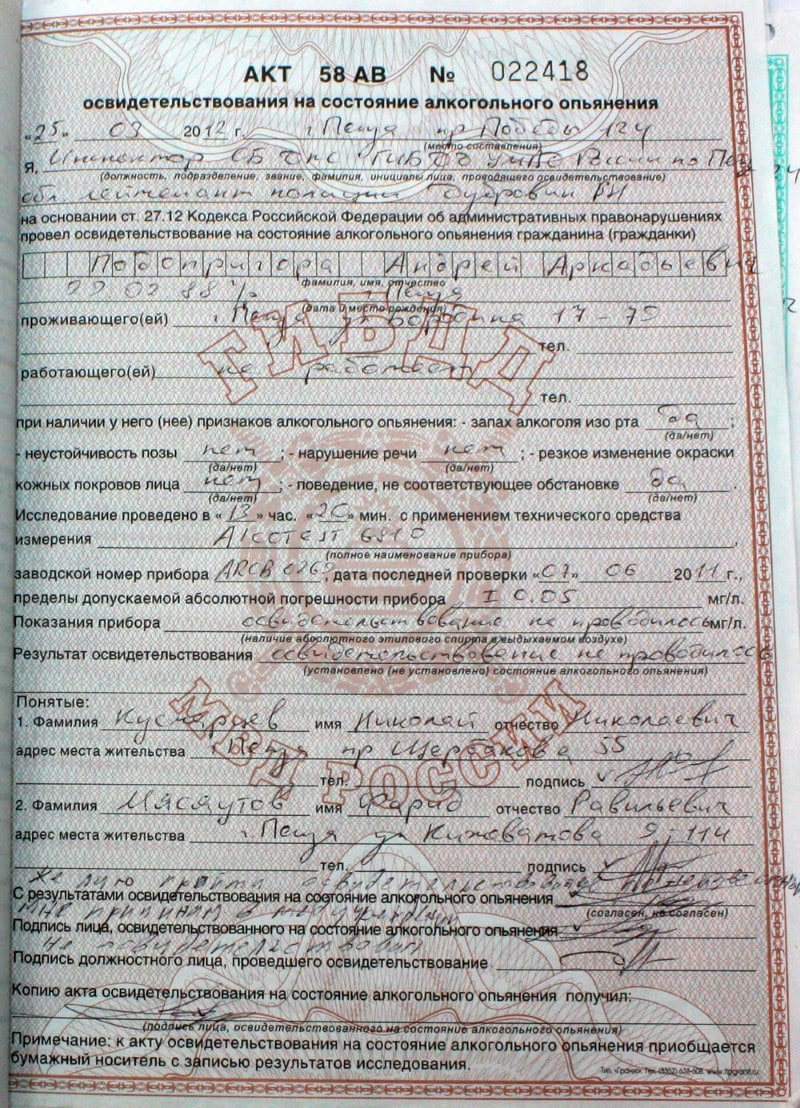 АКТ 58 АВ № 022418
освидетельствования на состояние алкогольного опьянения
«25» 03 2012 г. г Пенза пр Победы 124
(место составления)
Я, Инспектор ДПС ГИБДД УМВД России по
(должность, подразделение, звание, фамилия, инициалы лица, проводящего освидетельствование)
обл лейтенант полиции
на основании ст. 27.12 Кодекса Российской Федерации об административных правонарушениях
провел освидетельствование на состояние алкогольного опьянения гражданина (гражданки)
Подопригора Андрей Аркадьевич
фамилия, имя, отчество
29 02 88 г/р г Пенза
(дата и место рождения)
проживающего(ей) г. Пенза ул 17-75
тел.
работающего(ей) не работает
тел.
при наличии у него (нее) признаков алкогольного опьянения: - запах алкоголя изо рта да ;
(да/нет)
- неустойчивость позы нет ; - нарушение речи нет ; - резкое изменение окраски
(да/нет) (да/нет)
кожных покровов лица нет ; - поведение, не соответствующее обстановке да .
(да/нет) (да/нет)
Исследование проведено в «13» час. «20» мин. с применением технического средства
измерения Alcotest 6810 ,
(полное наименование прибора)
заводской номер прибора ARCB 0269, дата последней проверки «07» 06 2011 г.,
пределы допускаемой абсолютной погрешности прибора 0.05 мг/л.
Показания прибора освидетельствование не проводилось мг/л.
(наличие абсолютного этилового спирта в выдыхаемом воздухе)
Результат освидетельствования освидетельствование не проводилось
(установлено (не установлено) состояние алкогольного опьянения)
Понятые:
1. Фамилия имя Николай отчество Николаевич
адрес места жительства г. Пенза пр Щербакова 55
тел. подпись
2. Фамилия Мясяутов имя Фарид отчество Равильевич
адрес места жительства г. Пенза ул Кижеватова 9-114
тел. подпись
пройти освидетельствование
С результатами освидетельствования на состояние алкогольного опьянения
(согласен, не согласен)
Подпись лица, освидетельствованного на состояние алкогольного опьянения
Подпись должностного лица, проведшего освидетельствование
Копию акта освидетельствования на состояние алкогольного опьянения получил:
(подпись лица, освидетельствованного на состояние алкогольного опьянения)
Примечание: к акту освидетельствования на состояние алкогольного опьянения приобщается
бумажный носитель с записью результатов исследования.
ГИБДД
МВД РОССИИ